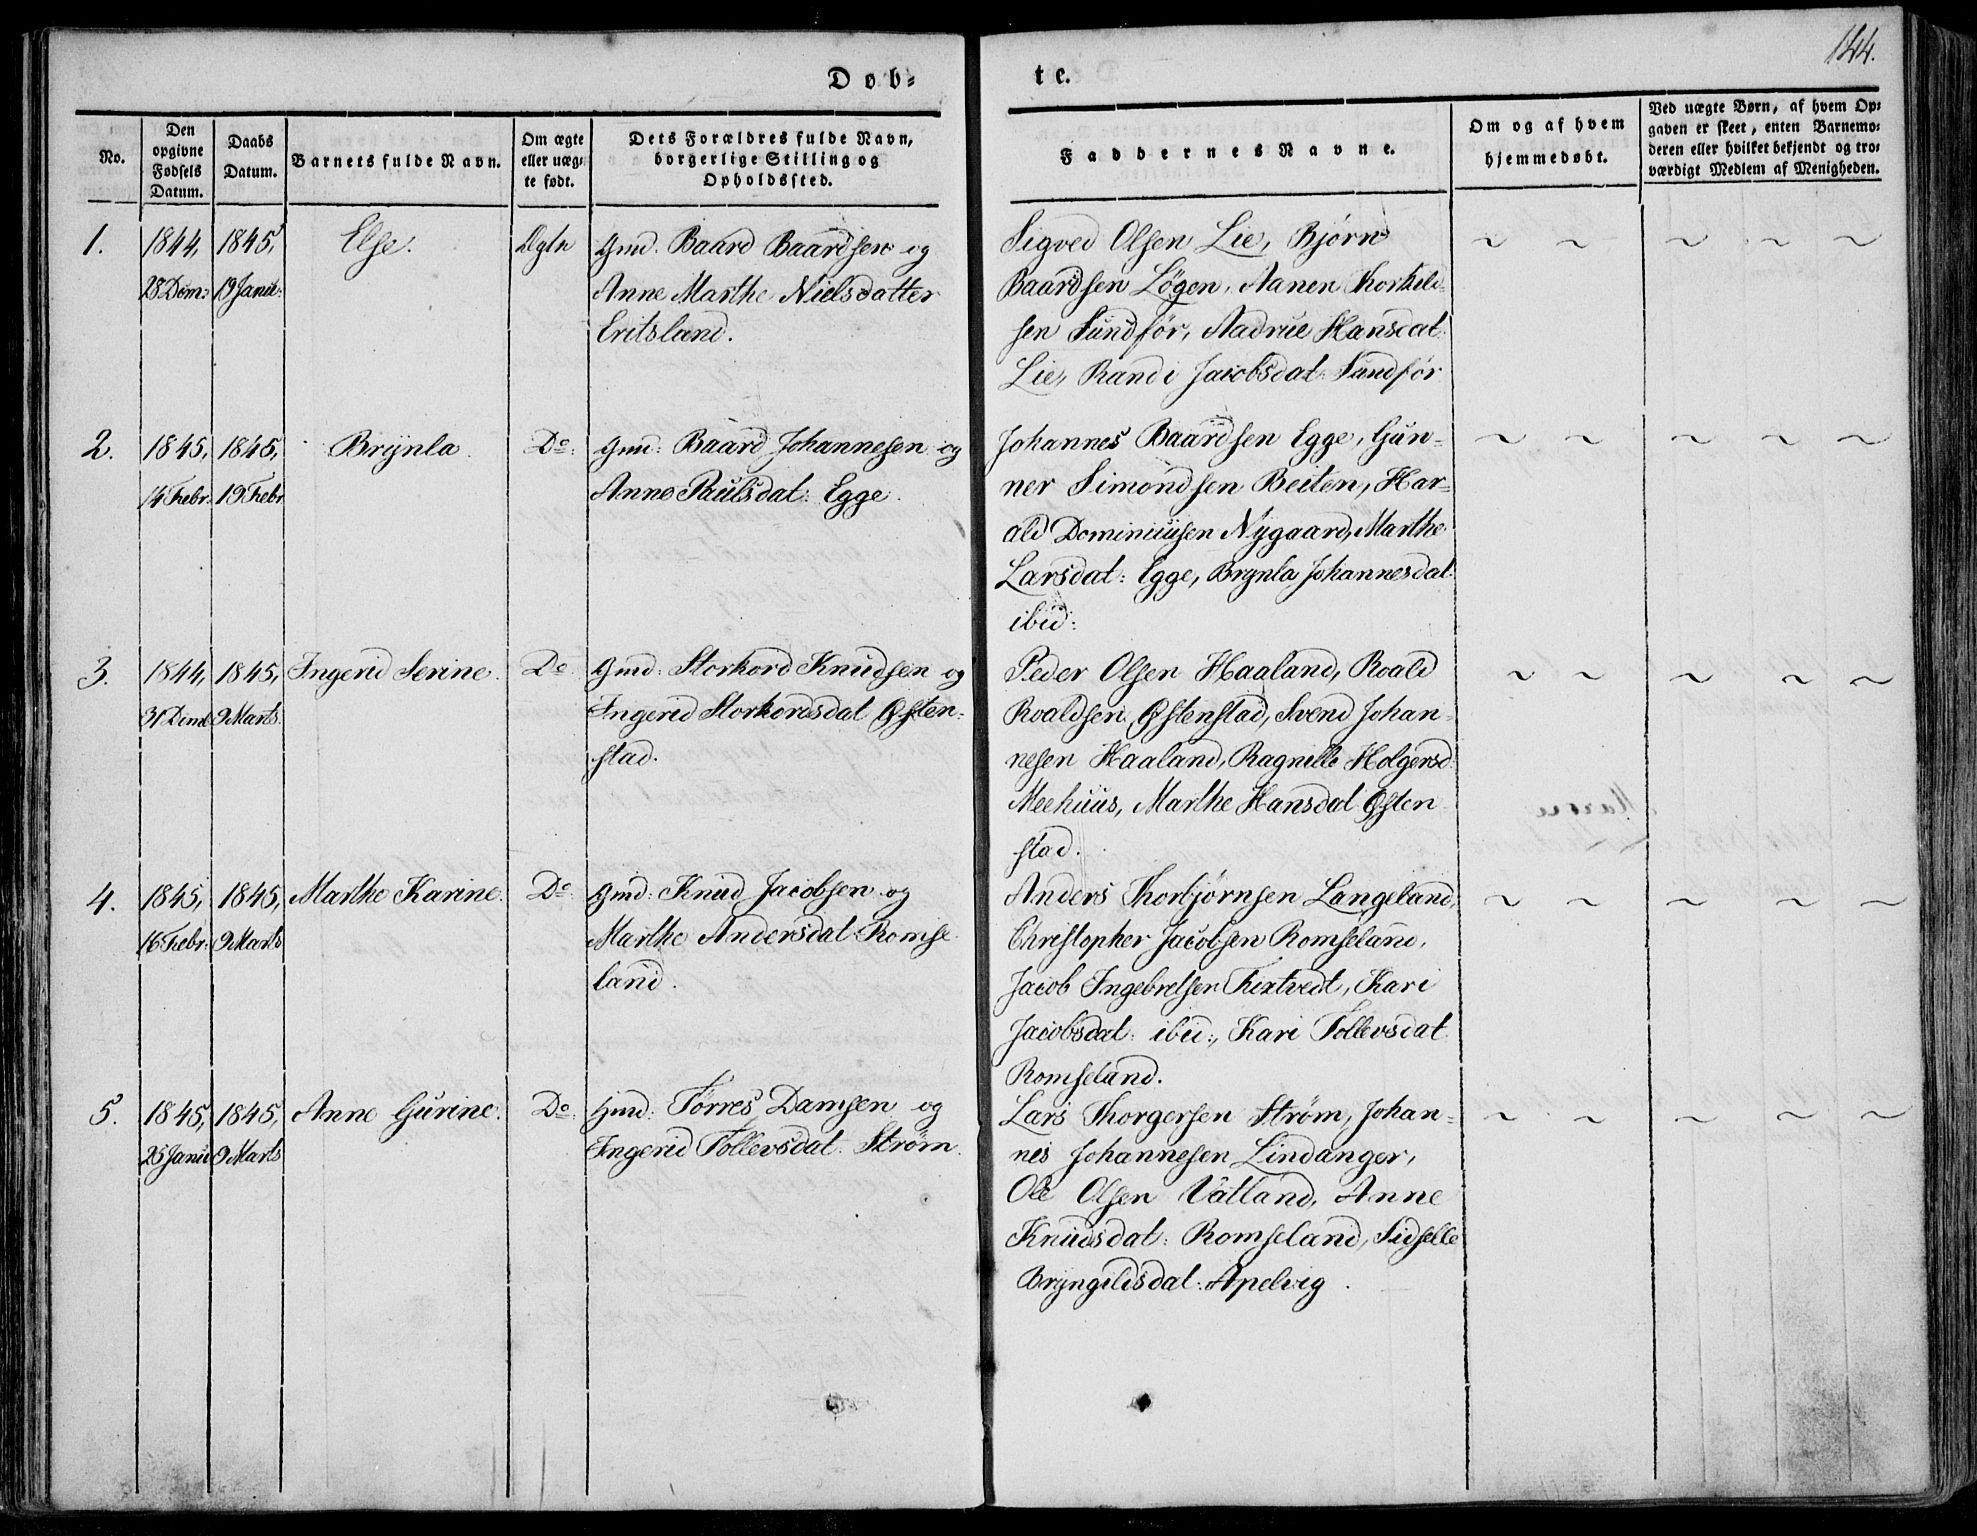 144.
Døb-
te.
No.
Den
opgivne
Fødsels
Datum.
Daabs
Datum.
Barnets fulde Navn.
Om ægte
eller uæg-
te født.
Dets Forældres fulde Navn,
borgerlige Stilling og
Opholdssted.
Faddernes Navne.
Om og af hvem
hjemmedøbt.
Ved uægte Børn, af hvem Op-
gaven er skeet, enten Barnemo-
deren eller hvilket bekjendt og tro-
værdigt Medlem af Menigheden.
1.
1844,
28 Dem:
1845,
19 Janu:
Else.
Ægtn
Gmd. Baard Baardsen og
Anne Marthe Nielsdatter
Eritsland.
Sigved Olsen Lie, Bjørn
Baardsen Løgen, Aanen Thorkild-
sen Sundfør, Aadrue Hansdat:
Lie, Randi Jacobsdat: Sundfør
~ ~ ~ ~ ~
2.
1845,
14 Febr:
1845,
19 Febr
Brynla.
Do.
Gmd: Baard Johannesen og
Anne Paulsdat: Egge.
Johannes Baardsen Egge, Gun-
ner Simondsen Beiten, Har-
ald Dominicusen Nygaard, Marthe
Larsdat: Egge, Brynla Johannesdat:
ibid:
~ ~ ~ ~ ~
3.
1844,
31 Dem
1845,
9 Marts
Ingerid Serine.
Do.
Gmd: Storkord Knudsen og
Ingerid Storkordsdat Østen-
stad.
Peder Olsen Haaland, Roald
Roaldsen Østenstad, Svend Johan-
nesen Haaland, Ragnille Holgersd:
Meehuus, Marthe Hansdat Østen
stad.
~ ~ ~ ~ ~
4.
1845,
16 Febr:
1845,
9 Marts
Marthe Karine.
Do.
Gmd: Knud Jacobsen og
Marthe Andersdat: Romse
land.
Anders Thorbjørnsen Langeland,
Christopher Jacobsen Romseland,
Jacob Ingebretsen Tixtvedt, Kari
Jacobsdat: ibid:, Kari Tollevsdat
Romseland.
~ ~ ~ ~ ~
5.
1845,
25 Janu
1845,
9 Marts
Anne Gurine.
Do.
Gmd: Tørres Damsen og
Ingerid Tollevsdat: Strøm.
Lars Thorgersen Strøm, Johan-
nes Johannesen Lindanger,
Ole Olsen Vatland, Anne
Knudsdat: Romseland, Sidselle
Bryngildsdat: Apelvig.
~ ~ ~ ~ ~